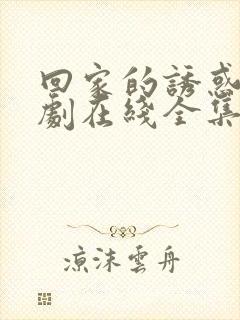 回家的誘惑
劇在綫全集
涼沫雲舟